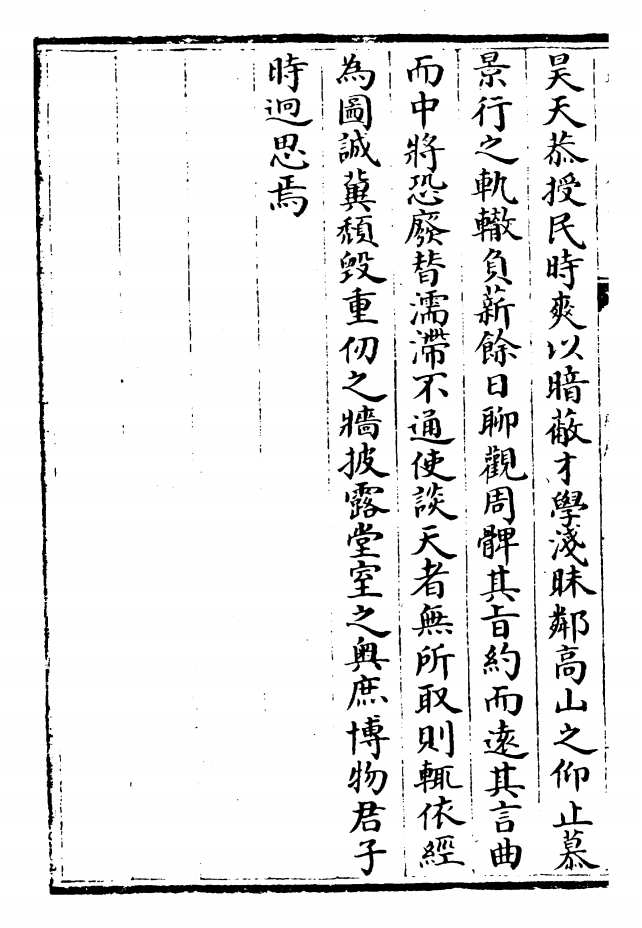 昊天恭授民時爽以暗蔽才學淺昧鄰高山之仰止慕
景行之軌轍負薪餘日聊觀周髀其旨約而遠其言曲
而中將恐廢替濡滯不通使談天者無所取則輒依經
為圖誠冀頹毀重仞之牆披露堂室之奧庶博物君子
時迥思焉